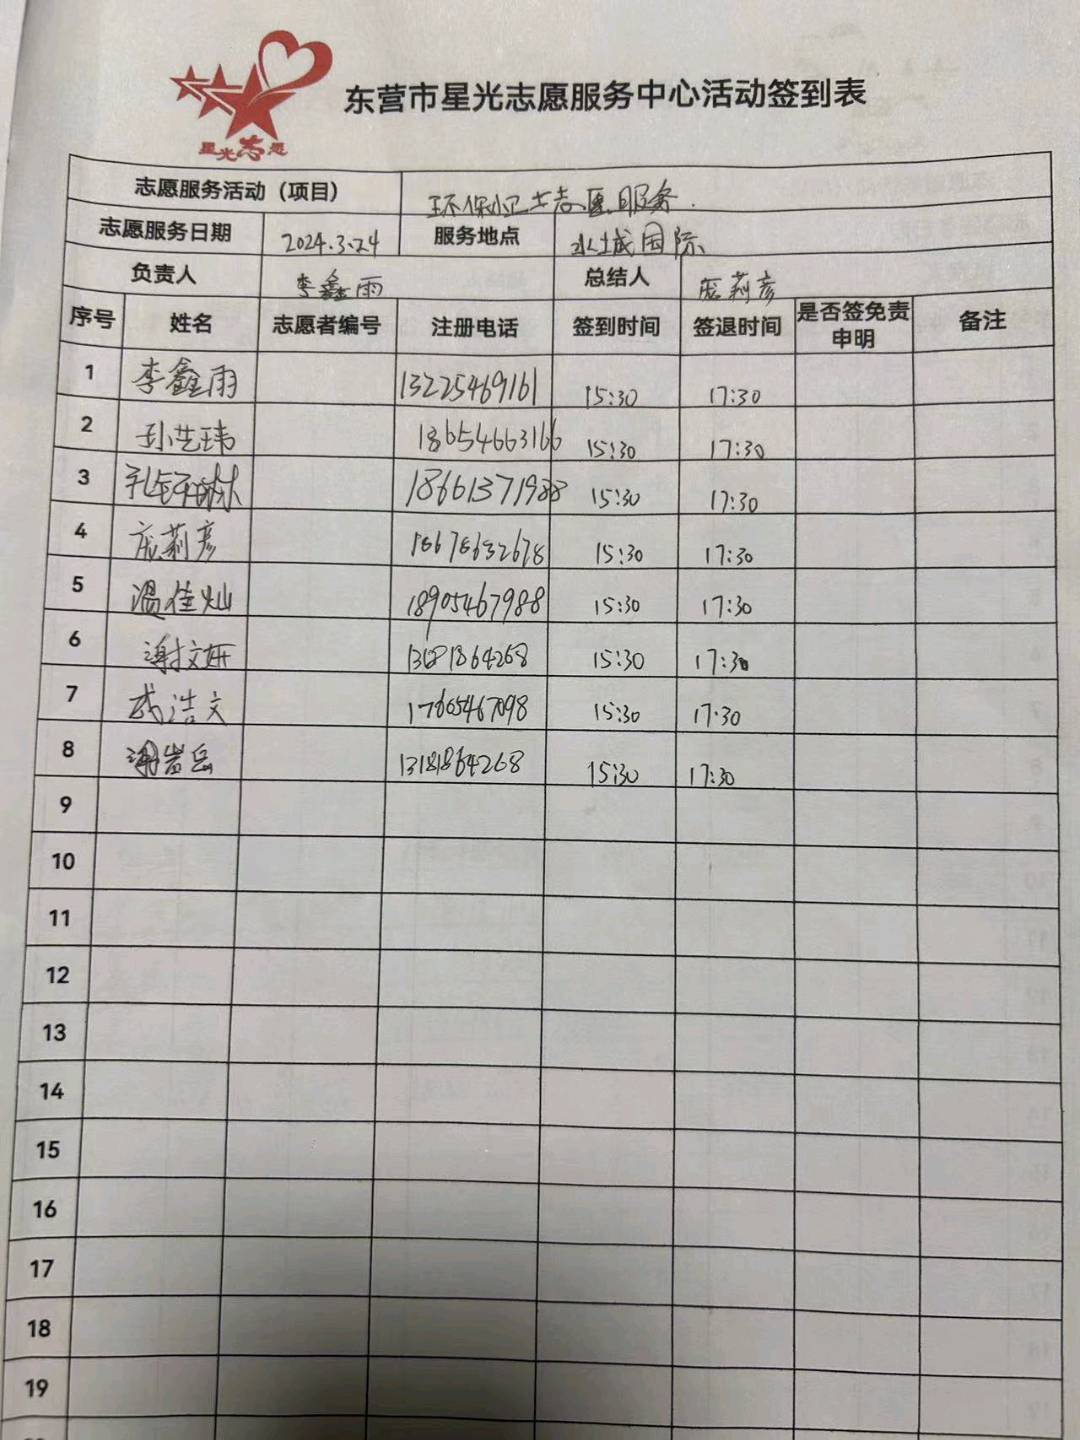 星光志愿
东营市星光志愿服务中心活动签到表
志愿服务活动（项目） 环保小卫士志愿服务.
志愿服务日期 2024.3.24 服务地点 水城国际
负责人 李鑫雨 总结人 庞莉彦
序号 姓名 志愿者编号 注册电话 签到时间 签退时间 是否签免责申明 备注
1 李鑫雨 13225469161 15:30 17:30
2 孙艺玮 18654663166 15:30 17:30
3 18661371988 15:30 17:30
4 庞莉彦 18678632678 15:30 17:30
5 温佳灿 18905467988 15:30 17:30
6 谢文妍 15:30 17:30
7 武浩文 17605467098 15:30 17:30
8 谢岩岳 13181864268 15:30 17:30
9
10
11
12
13
14
15
16
17
18
19